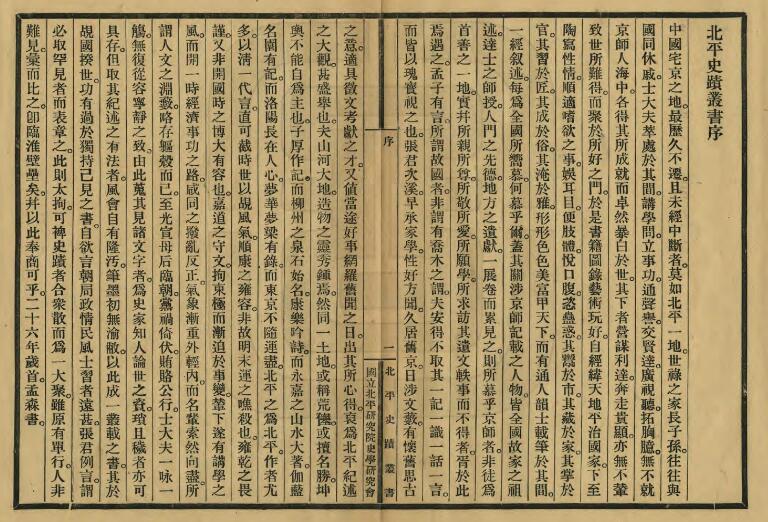 北平史蹟叢書序
中國宅京之地最歷久不遷且未經中斷者莫如北平一地世祿之家長子孫往往與
國同休戚士大夫萃處於其間講學問立事功通聲譽交賢達廣視聽拓胸臆無不就
京師人海中各得其所成就而卓然暴白於世其下者營謀利達奔走貴顯亦無不輦
致世所難得而聚於所好之門於是書籍圖錄藝術玩好自經緯天地平治國家下至
陶寫性情順適嗜欲之事娛耳目便肢體悅口腹恣蠱惑其鬻於市其藏於家其掌於
官其習於匠其成於俗其淹於雅形形色色美富甲天下而有通人韻士載筆於其間
一經叙述每爲全國所嚮慕何慕乎爾蓋其關涉京師記載之人物皆全國故家之祖
述達士之師授人門之先德地方之遺獻一展卷而累見之則所慕乎京師者非徒爲
首善之一地實幷所親所尊所敬所愛所願學所求訪其遺文軼事而不得者胥於此
焉遇之孟子有言所謂故國者非謂有喬木之謂夫安得不取其一記一識一話一言
而皆以瑰寶視之也張君次溪早承家學性好方聞久居舊京日涉文藪有懷舊思古
序
一
北平史蹟叢書
國立北平研究院史學研究會
之意適具徵文考獻之才又値當途好事網羅舊聞之日出其所心得裒爲北平紀述
之大觀甚盛舉也夫山河大地造物之靈秀鍾焉然同一土地或稱荒僿或擅名勝坤
輿不能自爲主也子厚作記而柳州之泉石始名康樂吟詩而永嘉之山水大著伽藍
名園有記而洛陽長在人心夢華夢粱有錄而東京不隨運盡北平之爲北平作者尤
多以淸一代言直可截時世以覘風氣順康之雍容非故明末運之噍殺也雍乾之畏
謹又非開國時之博大有容也嘉道之守文拘束極而漸迫於事變羣下遂有講學之
風而開一時經濟事功之路咸同之撥亂反正氣象漸重外輕內而名輩索然向盡所
謂人文之淵藪略存軀殼而已至光宣母后臨朝黨禍倚伏賄賂公行士大夫一咏一
觴無復從容寧靜之致由此蒐其見諸文字者爲史家知人論世之資瑣且穢者亦可
具存但取其紀述之有法者風會自有隆汚筆墨初無渝敝以此成一叢載之書其於
覘國揆世功有過於獨持己見之書自欲言朝局政情民風士習者遠甚張君例言謂
必取罕見者而表章之此則太拘可裨史蹟者合衆散而爲一大聚雖原有單行人非
難見彙而比之卽臨淮壁壘矣幷以此奉商可乎二十六年歲首孟森書